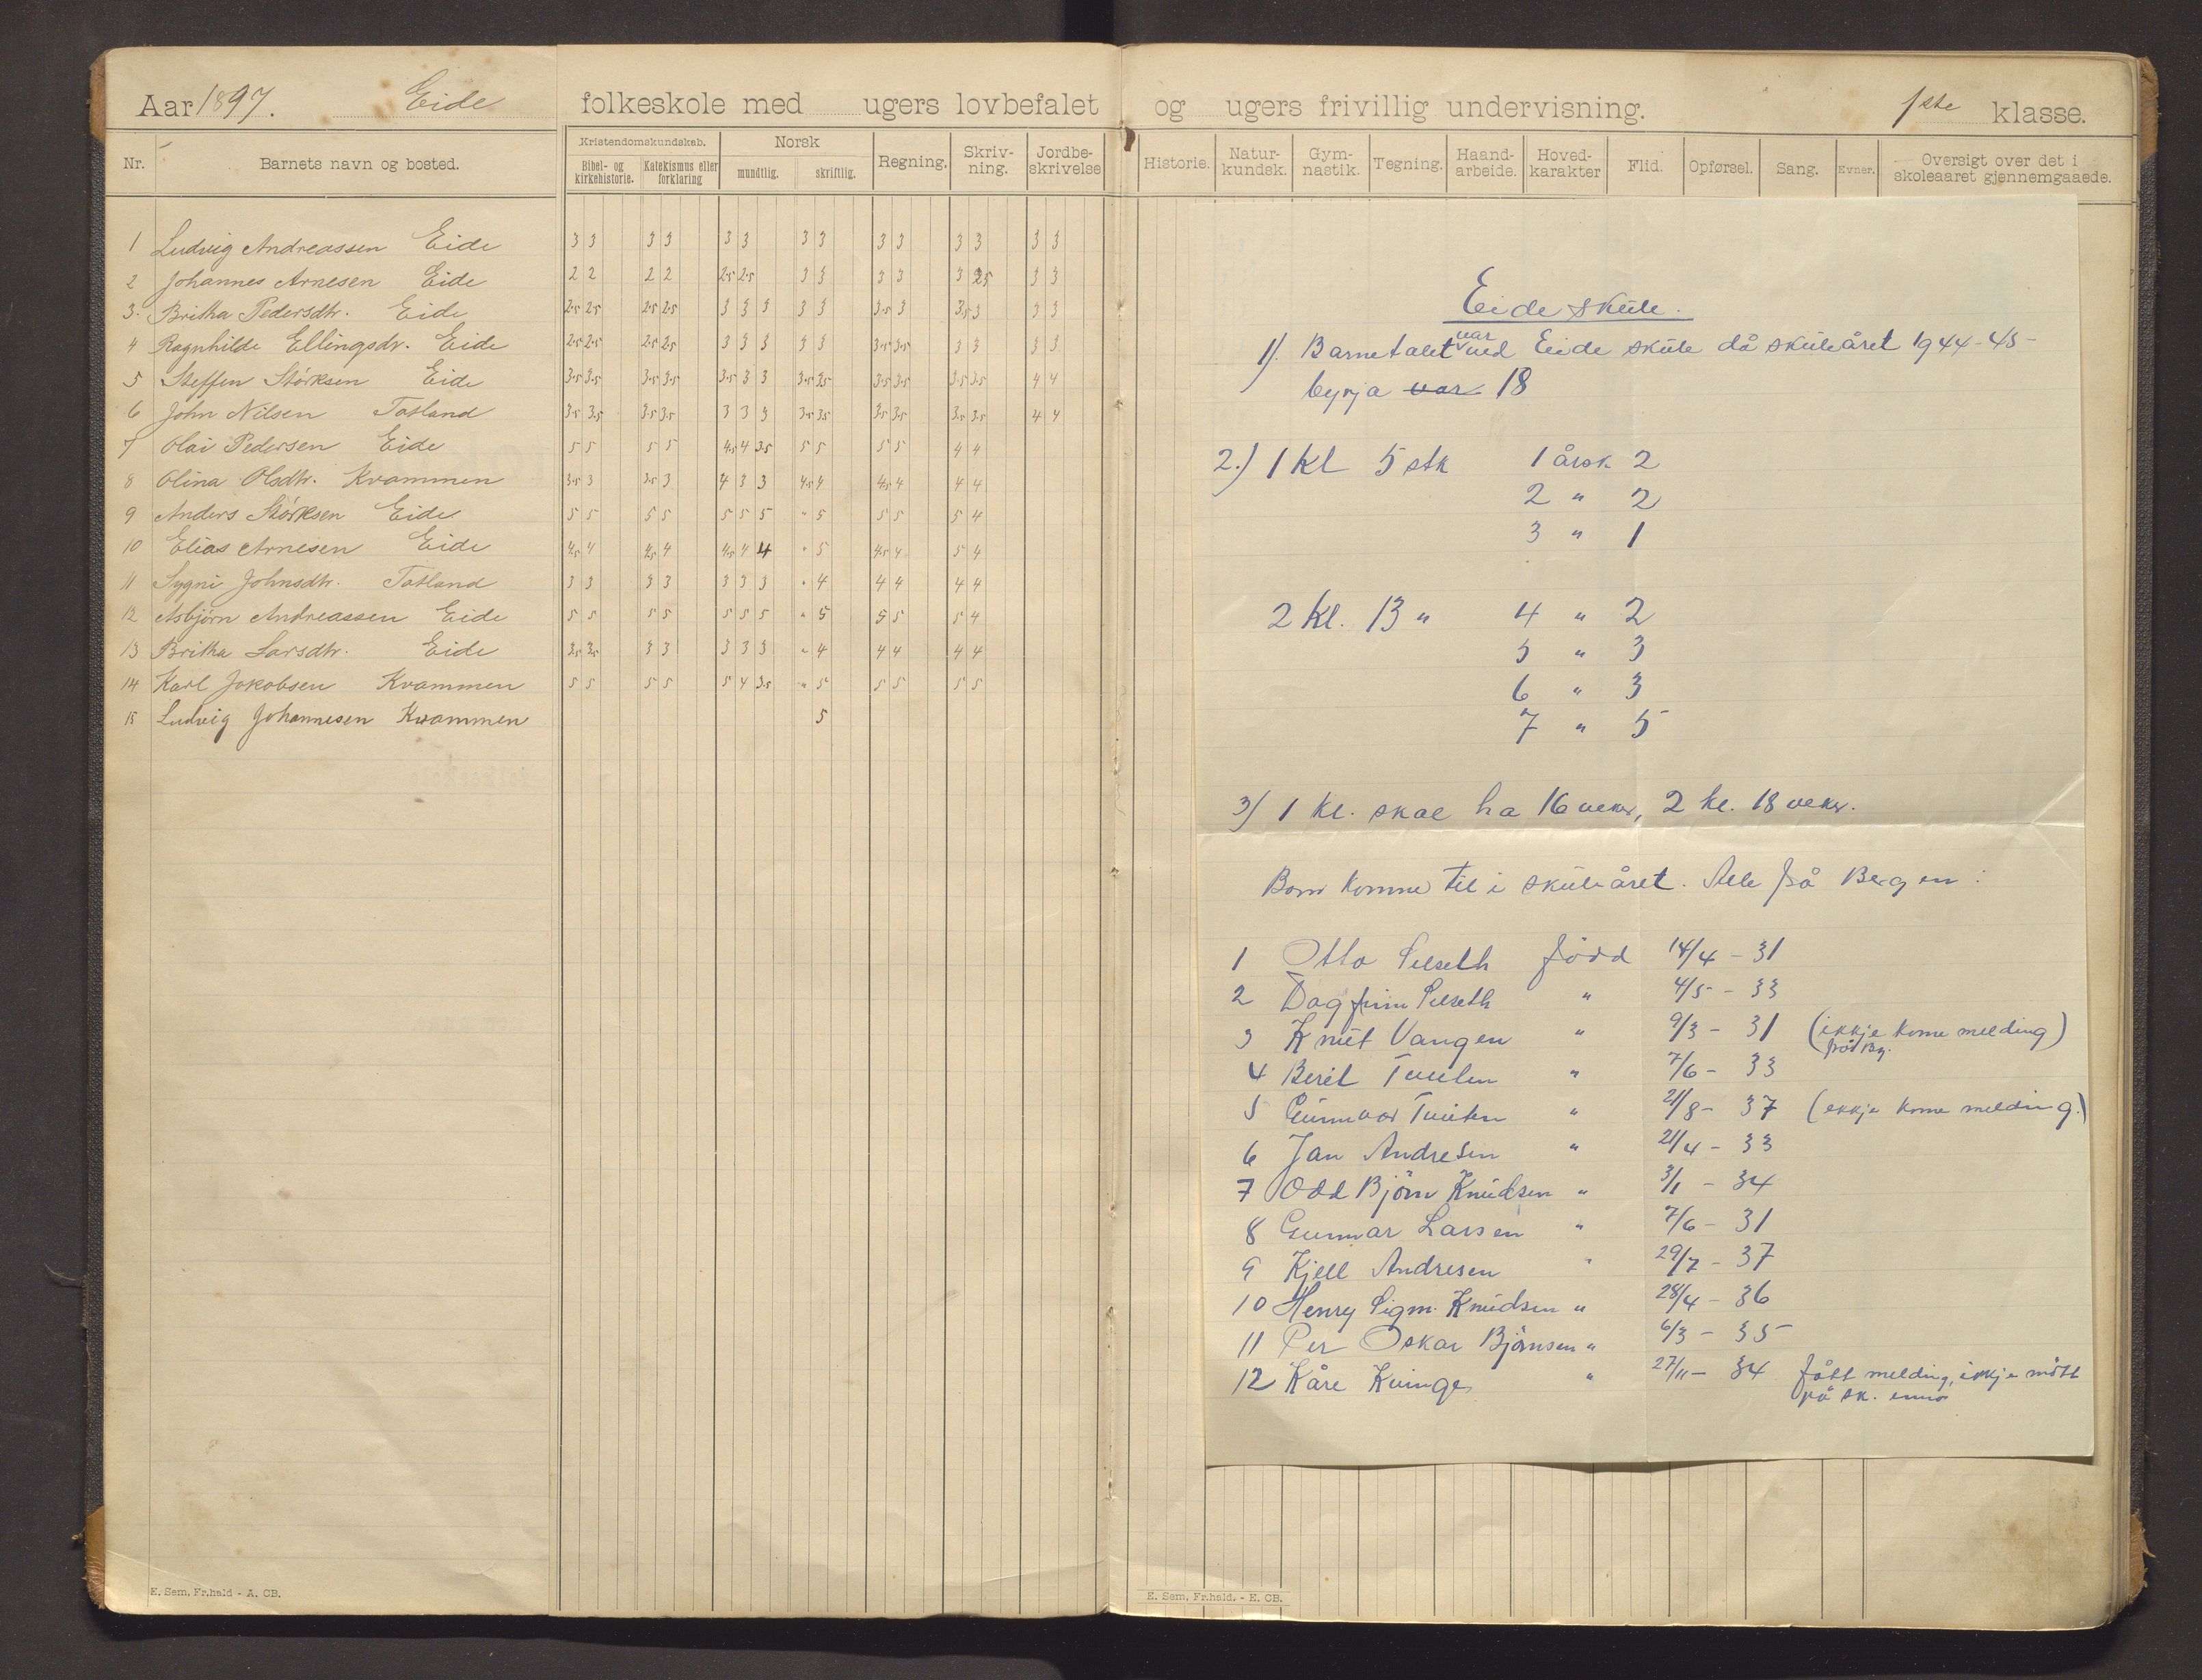 Aar 1897. Eide folkeskole med ugers lovbefalet og ugers frivillig undervisning. 1ste klasse.
Nr. Barnets navn og bosted. Kristendomskundskab. Bibel- og kirkehistorie. Katekismus eller forklaring Norsk mundtlig. skriftlig. Regning. Skriv-ning. Jordbe-skrivelse Historie. Natur-kundsk. Gym-nastik. Tegning. Haand-arbeide. Hoved-karakter Flid. Opførsel. Sang. Evner. Oversigt over det i skoleaaret gjennemgaaede.
1 Ludvig Andreassen Eide 3 3 3 3 3 3 3 3 3 3 3 3 3 3
2 Johannes Arnesen Eide 2 2 2 2 2.5 2.5 3 3 3 3 3 2.5 3 3
3. Britha Pedersdtr. Eide 2.5 2.5 2.5 2.5 3 3 3 3 3 3.5 3 3.5 3 3 3
4 Ragnhilde Ellingsdr. Eide 2.5 2.5 2.5 2.5 3 3 3 3 3 3.5 3.5 3 3 3 3
5 Steffen Störksen Eide 3.5 3.5 3.5 3.5 3.5 3 3 3.5 3.5 3.5 3.5 3.5 3.5 4 4
6 John Nilsen Totland 3.5 3.5 3.5 3.5 3 3 3 3.5 3.5 3.5 3.5 3.5 3.5 4 4
7 Olai Pedersen Eide 5 5 5 5 4.5 4 3.5 5 5 5 5 4 4
8 Olina Olsdtr. Kvammen 3.5 3 3.5 3 4 3 3 4.5 4 4.5 4 4 4
9 Anders Störksen Eide 5 5 5 5 5 5 5 " 5 5 5 5 4
10 Elias Arnesen Eide 4.5 4 4.5 4 4.5 4 4 " 5 4.5 4 5 4
11 Sygni Johnsdtr. Totland 3 3 3 3 3 3 3 " 4 4 4 4 4
12 Asbjörn Andreassen Eide 5 5 5 5 5 5 5 " 5 5 5 5 4
13 Britha Larsdtr. Eide 3.5 3.5 3 3 3 3 3 " 4 4 4 4 4
14 Karl Jokobsen Kvammen 5 5 5 5 5 4 3.5 " 5 5 5 5 5
15 Ludvig Johannesen Kvammen 5
E. Sem, Fr.hald - A. CB.
Eide skule.
1). Barnetalet var ved Eide skule då skuleåret 1944-45-
byrja var 18
2.) 1 kl 5 stk 1 årsk 2
2 " 2
3 " 1
2 kl. 13 " 4 " 2
5 " 3
6 " 3
7 " 5
3) 1 kl. skal ha 16 veker, 2 kl. 18 veker.
Born komne til i skuleåret. Alle frå Bergen:
1 Otto Selseth född 14/4 - 31
2 Dagfinn Selseth " 4/5 - 33
3 Knut Vangen " 9/3 - 31 (ikkje kome melding)
frå Bg.
4 Berit Tveiten " 7/6 - 33
5 Gunnvor Tveiten " 21/8 - 37 (ikkje kome melding.)
6 Jan Andresen " 21/4 - 33
7 Odd Björn Knudsen " 3/1 - 34
8 Gunnar Larsen " 7/6 - 31
9 Kjell Andresen " 29/7 - 37
10 Henry Sigm. Knudsen " 28/4 - 36
11 Per Oskar Björnsen " 6/3 - 35
12 Kåre Kvinge " 27/11 - 34 fått melding, ikkje mött
på sk. enno
E. Sem, Fr.hald. - E. CB.